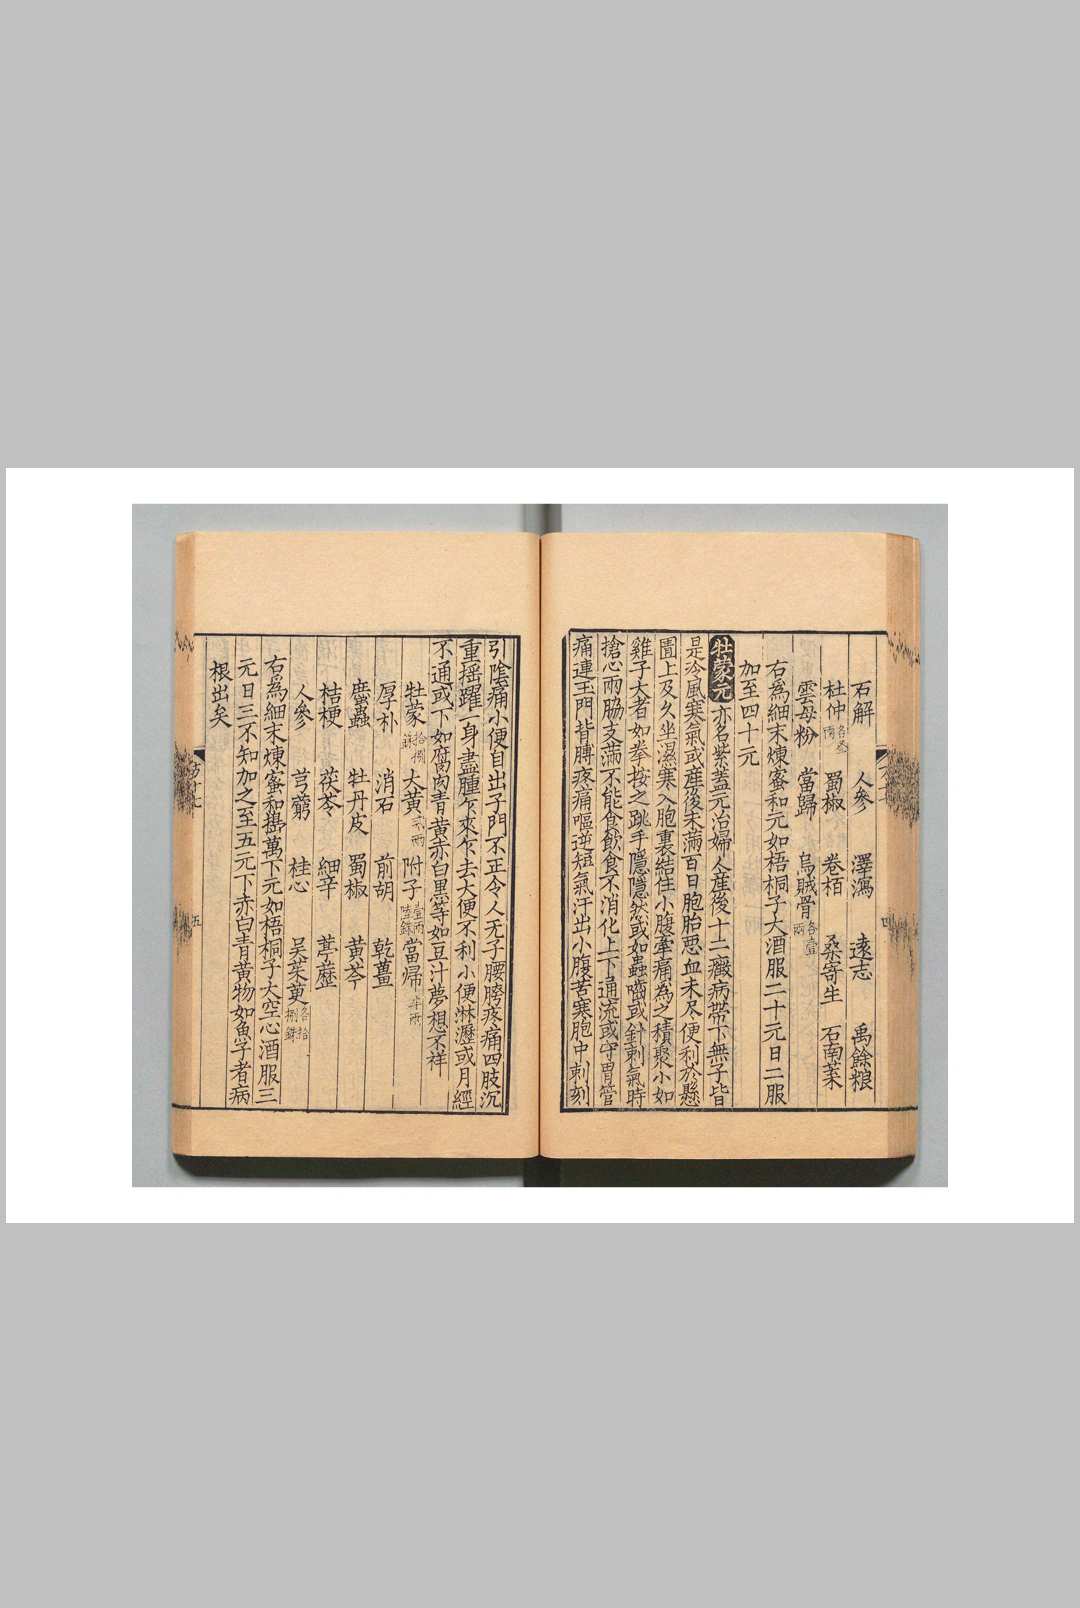 石解 人參 澤瀉 遠志 禹餘粮
杜仲各叁兩 蜀椒 卷栢 桑寄生 石南葉
雲母粉 當歸 烏賊骨各壹兩
右為細末煉蜜和元如梧桐子大酒服二十元日二服
加至四十元
牡蒙元亦名紫蓋元治婦人産後十二癥病帶下無子皆
是冷風寒氣或産後未滿百日胞胎惡血未尽便利於懸
圊上及久坐濕寒入胞裏結住小腹牢痛為之積聚小如
雞子大者如拳按之跳手隱隱然或如蟲嚙或針刺氣時
搶心兩脇支滿不能食飲食不消化上下通流或守胃管
痛連玉門背膊疼痛嘔逆短氣汗出小腹苦寒胞中刺刻
引陰痛小便自出子門不正令人无子腰胯疼痛四肢沉
重揺躍一身盡腫乍來乍去大便不利小便淋瀝或月經
不通或下如腐肉青黄赤白黒等如豆汁夢想不祥
牡蒙拾捌銖 大黄弍兩 附子壹兩陸銖 當帰半兩
厚朴 消石 前胡 乾薑
䗪蟲 牡丹皮 蜀椒 黄芩
桔梗 茯苓 細辛 葶藶
人參 芎藭 桂心 吴茱萸各拾捌銖
右為細末煉蜜和擣萬下元如梧桐子大空心酒服三
元日三不知加之至五元下赤白青黄物如魚子者病
根出矣
方十七
五